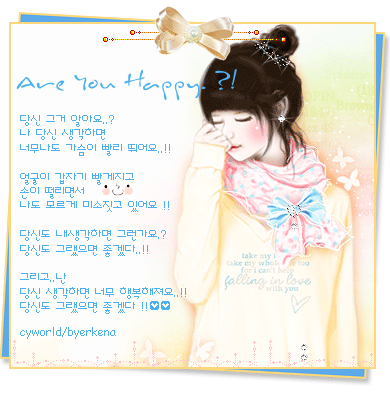 Are You Happy..?!
당신 그거 알아요..?
나 당신 생각하면
너무나도 가슴이 빨리 뛰어요..!!
얼굴이 갑자기 빨개지고
손이 떨리면서
나도 모르게 미소짓고 있어요 !!
당신도 내생각하면 그런가요.?
당신도 그랬으면 좋겠다..!!
그리고..난
당신 생각하면 너무 행복해져요..!!
당신도 그랬으면 좋겠다 !!
cyworld/byerkena
take my
take my whole
too
for i can't help
falling in love
with you